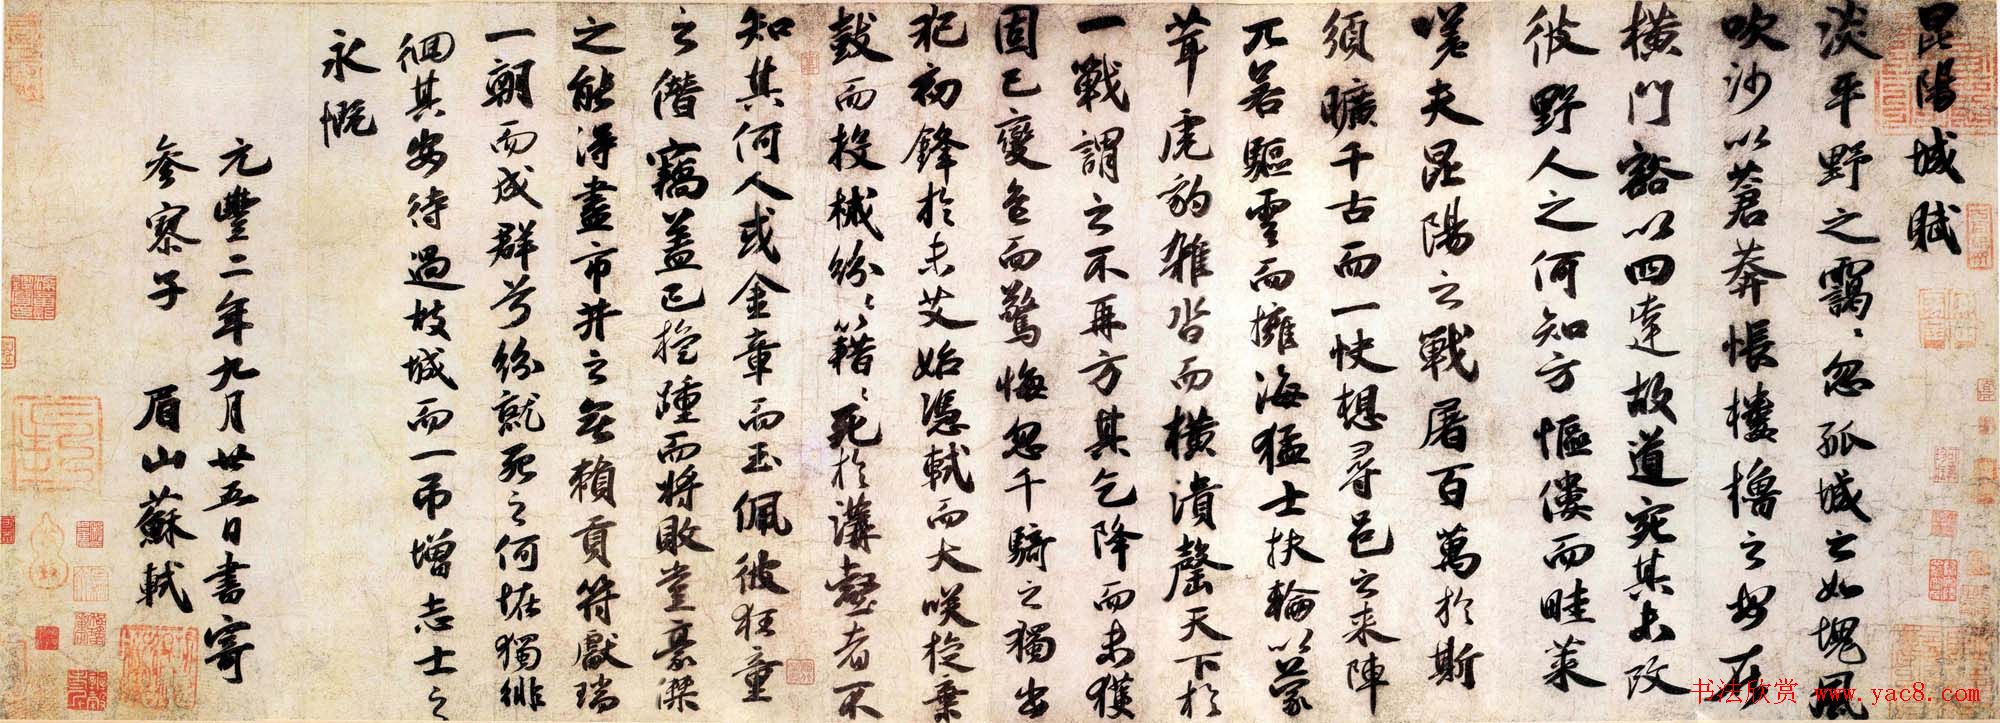 昆陽城賦
淡平野之靄〻忽孤城之如塊風
吹沙以蒼莽悵樓櫓之安在
橫門豁以四達故道宛其未改
彼野人之何知方傴僂而畦菜
嗟夫昆陽之戰屠百萬於斯
須曠千古而一快想尋邑之來陣
兀若驅雲而擁海猛士扶輪以蒙
茸虎豹雜沓而橫潰罄天下於
一戰謂之不再方其乞降而未獲
固已變色而驚悔忽千騎之獨出
犯初鋒於未艾始憑軾而大咲旋棄
鼓而投械紛〻籍〻死於溝壑者不
知其何人或金章而玉佩彼狂童
之僭竊蓋已旋踵而將敗豈豪傑
之能得盡市井之無賴貢符獻瑞
一朝而成群兮紛就死之何恠獨徘
徊其安待過故城而一吊增志士之
永慨
元豐二年九月廿五日書寄
參寥子 眉山蘇軾
书法欣赏 www.yac8.com